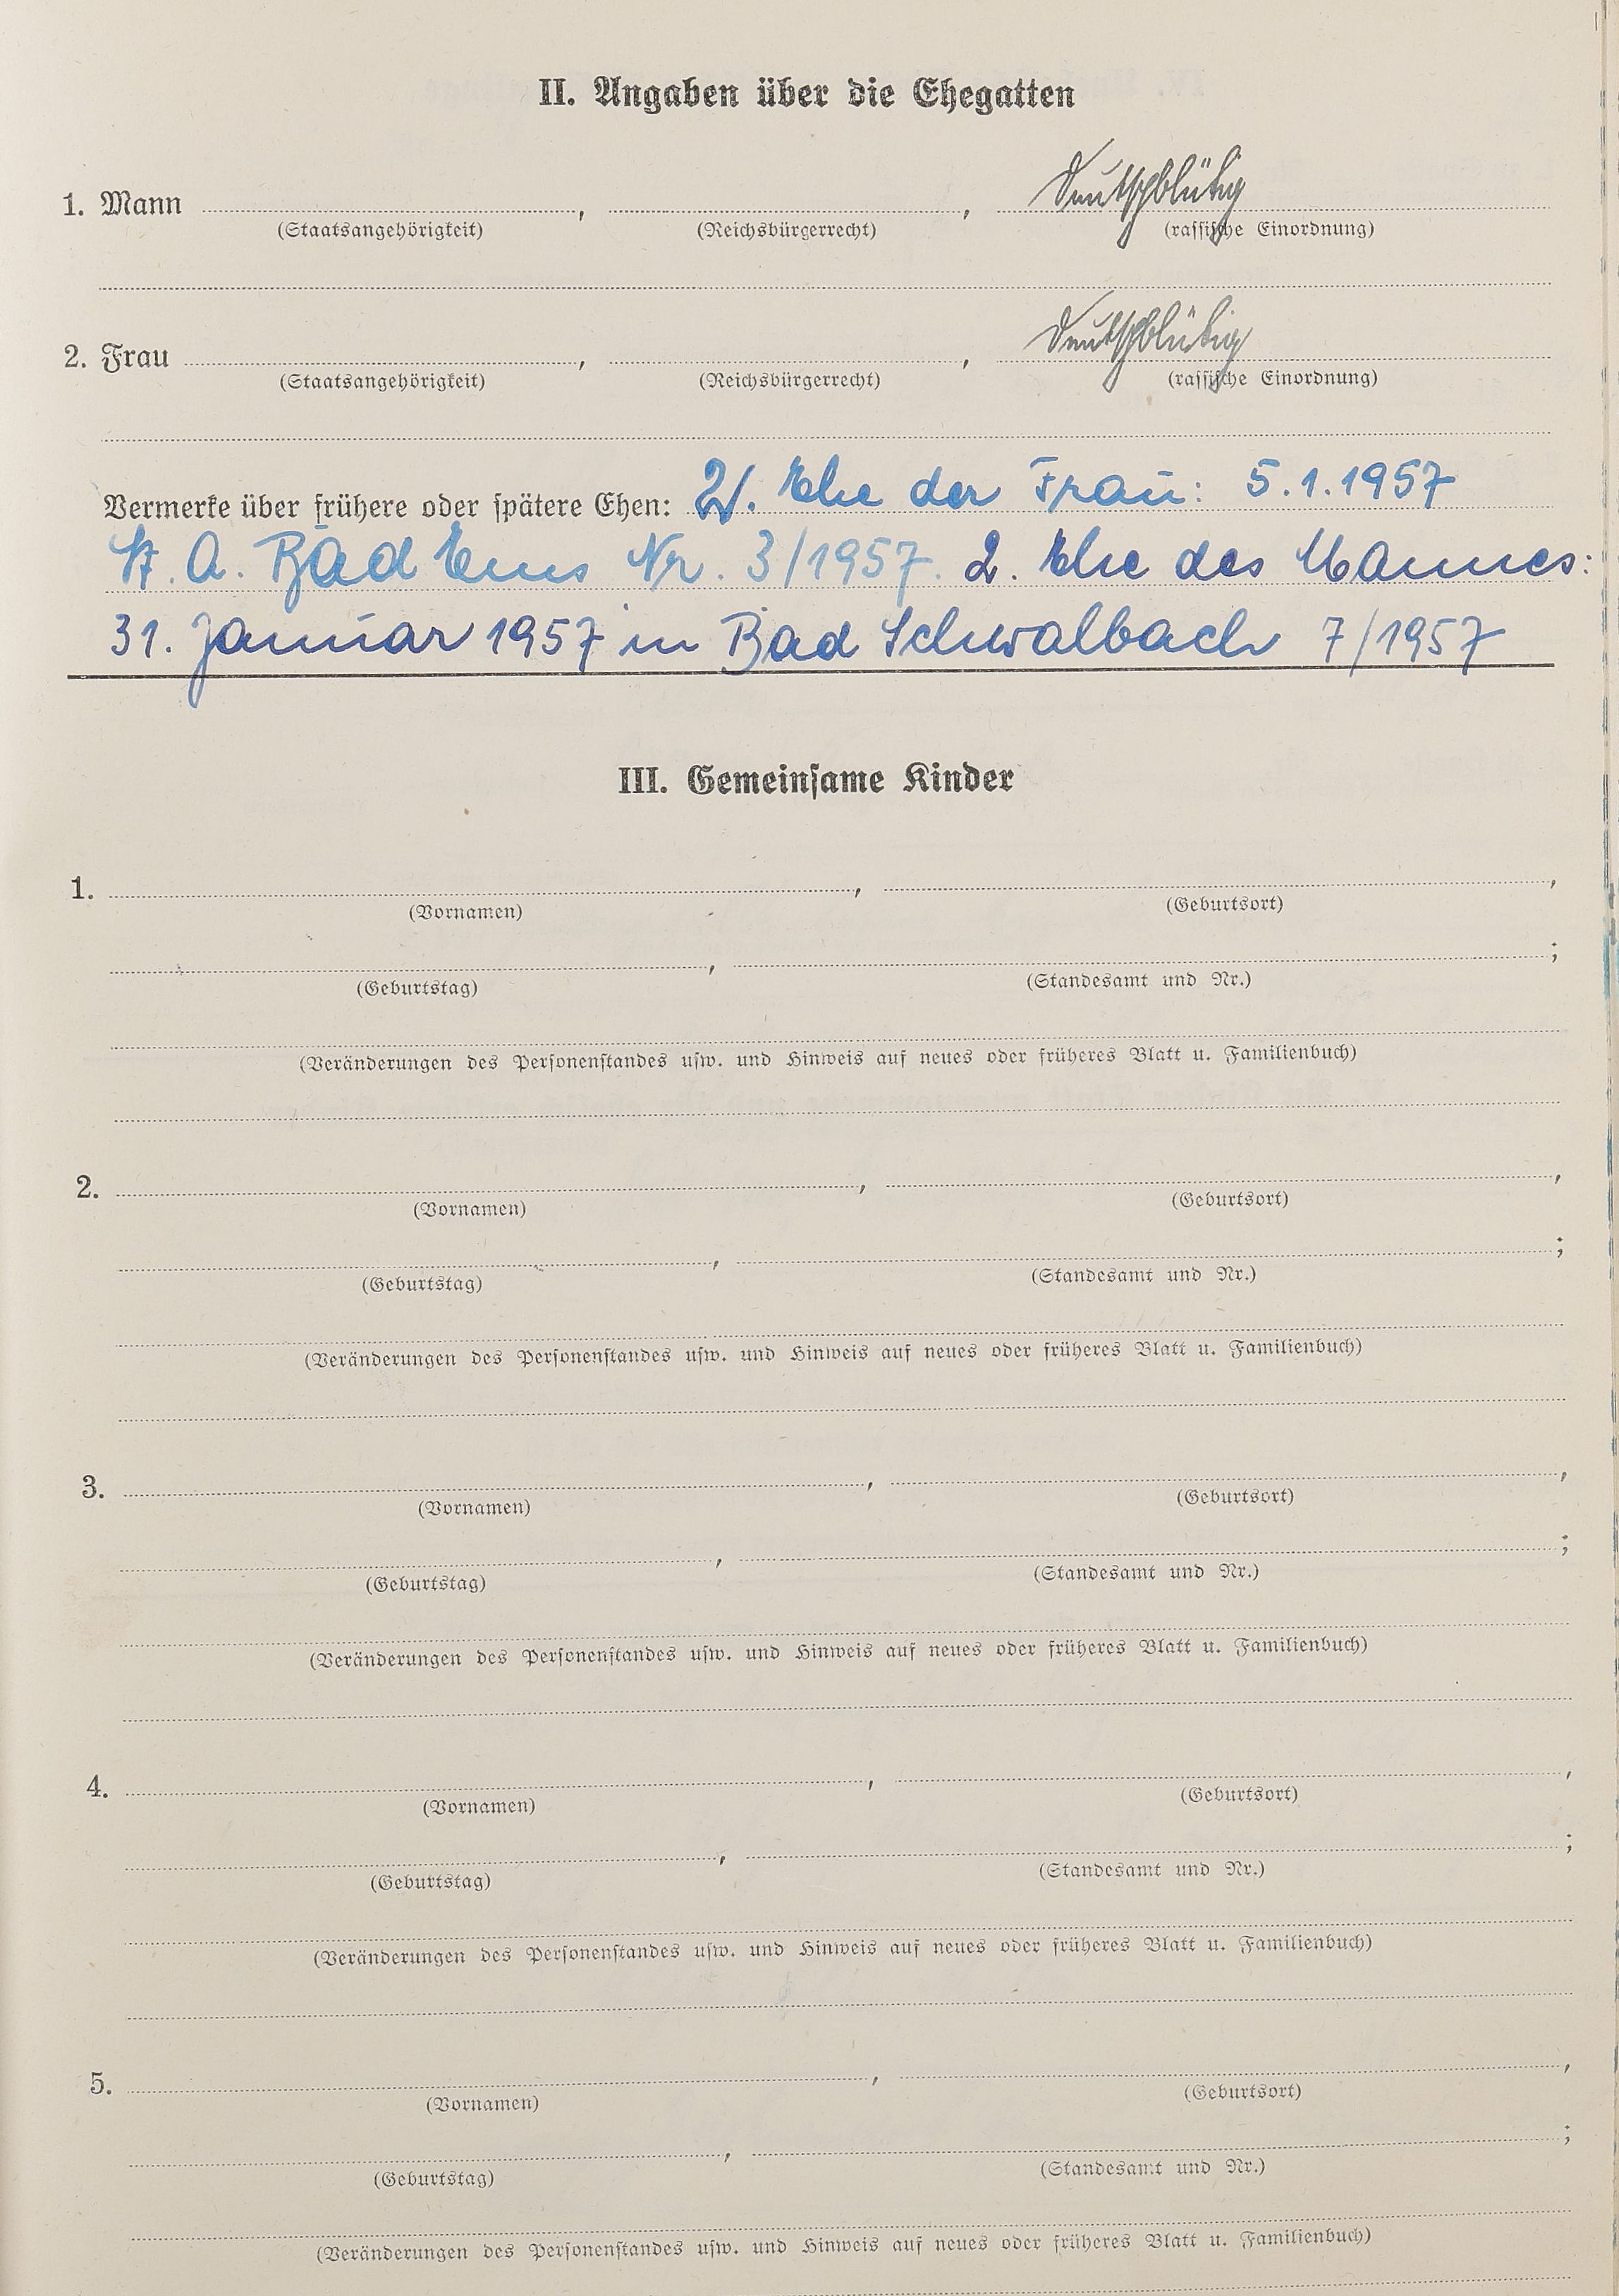 II. Angaben über die Ehegatten
1. Mann , , deutschblütig
(Staatsangehörigkeit) (Reichsbürgerrecht) (rassische Einordnung)
2. Frau , , deutschblütig
(Staatsangehörigkeit) (Reichsbürgerrecht) (rassische Einordnung)
Vermerke über frühere oder spätere Ehen: 2. Ehe der Frau: 5.1.1957
St. A. Bad Ems Nr. 3/1957. 2. Ehe des Mannes:
31. Januar 1957 in Bad Schwalbach 7/1957
III. Gemeinsame Kinder
1. , ,
(Vornamen) (Geburtsort)
, ;
(Geburtstag) (Standesamt und Nr.)
(Veränderungen des Personenstandes usw. und Hinweis auf neues oder früheres Blatt u. Familienbuch)
2. , ,
(Vornamen) (Geburtsort)
, ;
(Geburtstag) (Standesamt und Nr.)
(Veränderungen des Personenstandes usw. und Hinweis auf neues oder früheres Blatt u. Familienbuch)
3. , ,
(Vornamen) (Geburtsort)
, ;
(Geburtstag) (Standesamt und Nr.)
(Veränderungen des Personenstandes usw. und Hinweis auf neues oder früheres Blatt u. Familienbuch)
4. , ,
(Vornamen) (Geburtsort)
, ;
(Geburtstag) (Standesamt und Nr.)
(Veränderungen des Personenstandes usw. und Hinweis auf neues oder früheres Blatt u. Familienbuch)
5. , ,
(Vornamen) (Geburtsort)
, ;
(Geburtstag) (Standesamt und Nr.)
(Veränderungen des Personenstandes usw. und Hinweis auf neues oder früheres Blatt u. Familienbuch)